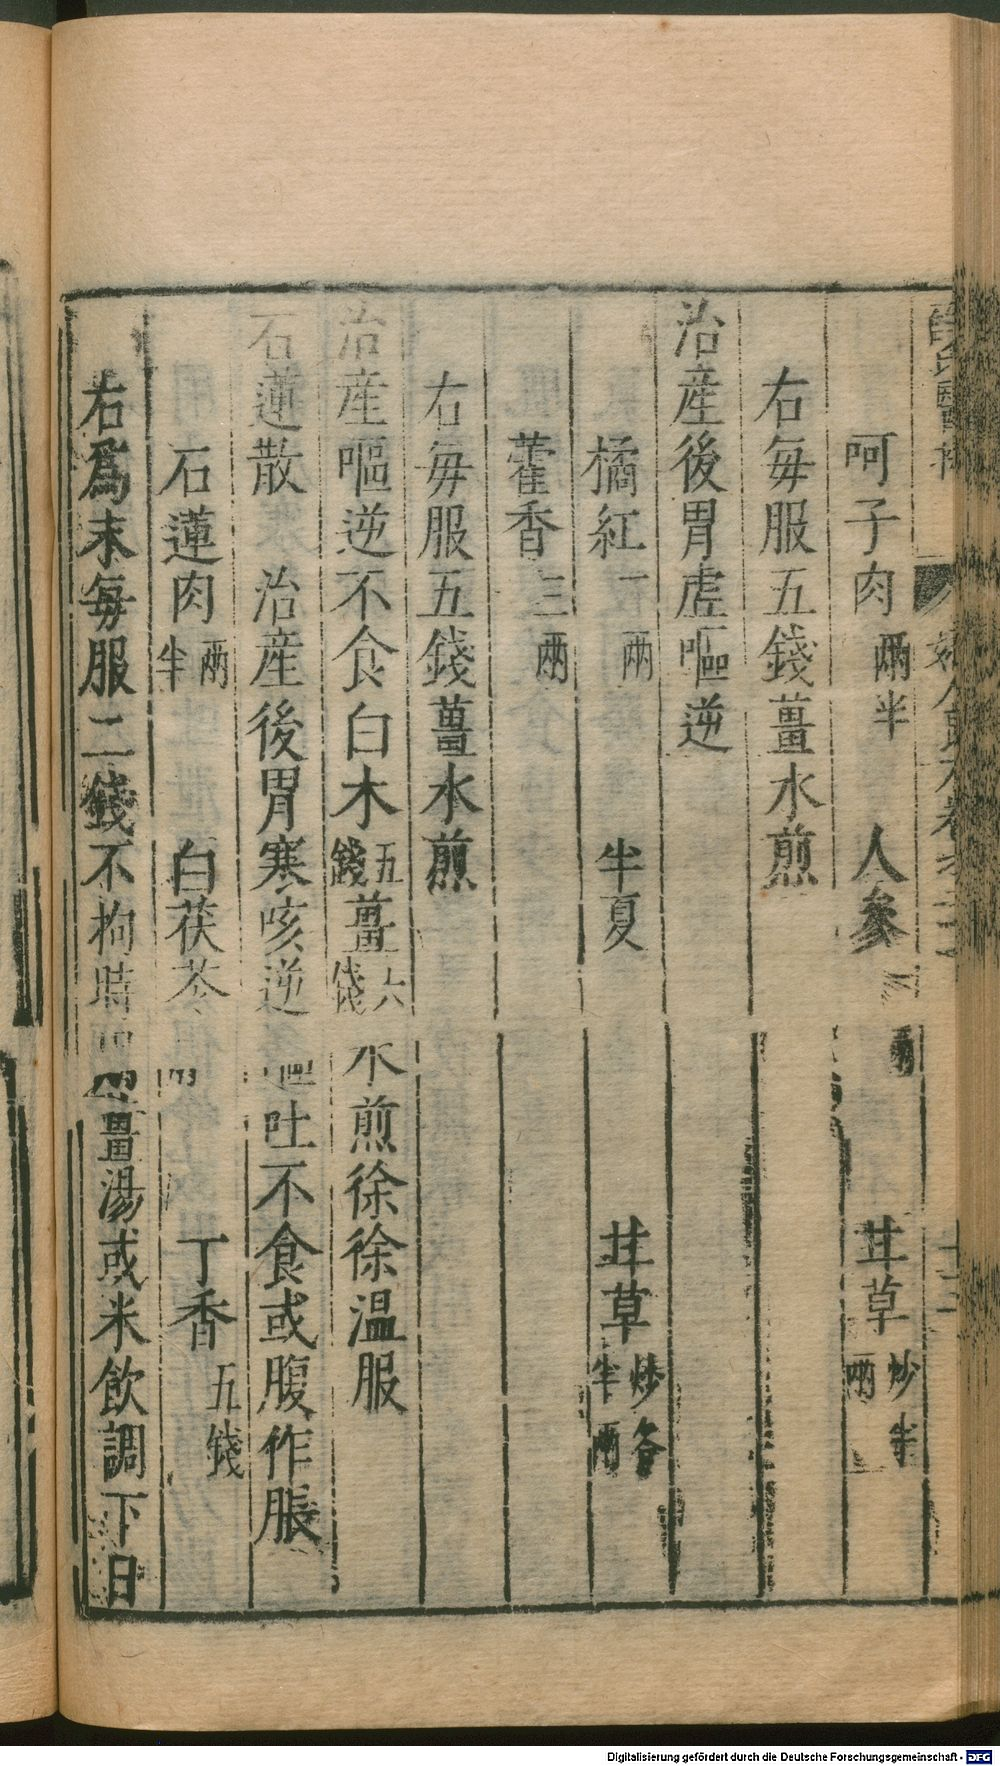 呵子肉兩半 人參 兩 甘草炒半兩
右每服五錢薑水煎
治產後胃虚嘔逆
橘紅一兩 半夏 甘草炒各半兩
藿香三兩
右每服五錢薑水煎
治產嘔逆不食白木五錢薑六錢水煎徐徐温服
石蓮散 治產後胃寒咳逆嘔吐不食或腹作脹
石蓮肉兩半 白茯苓 丁香五錢
右爲末每服二錢不拘時薑湯或米飲調下日
Digitalisierung gefördert durch die Deutsche Forschungsgemeinschaft - DFG